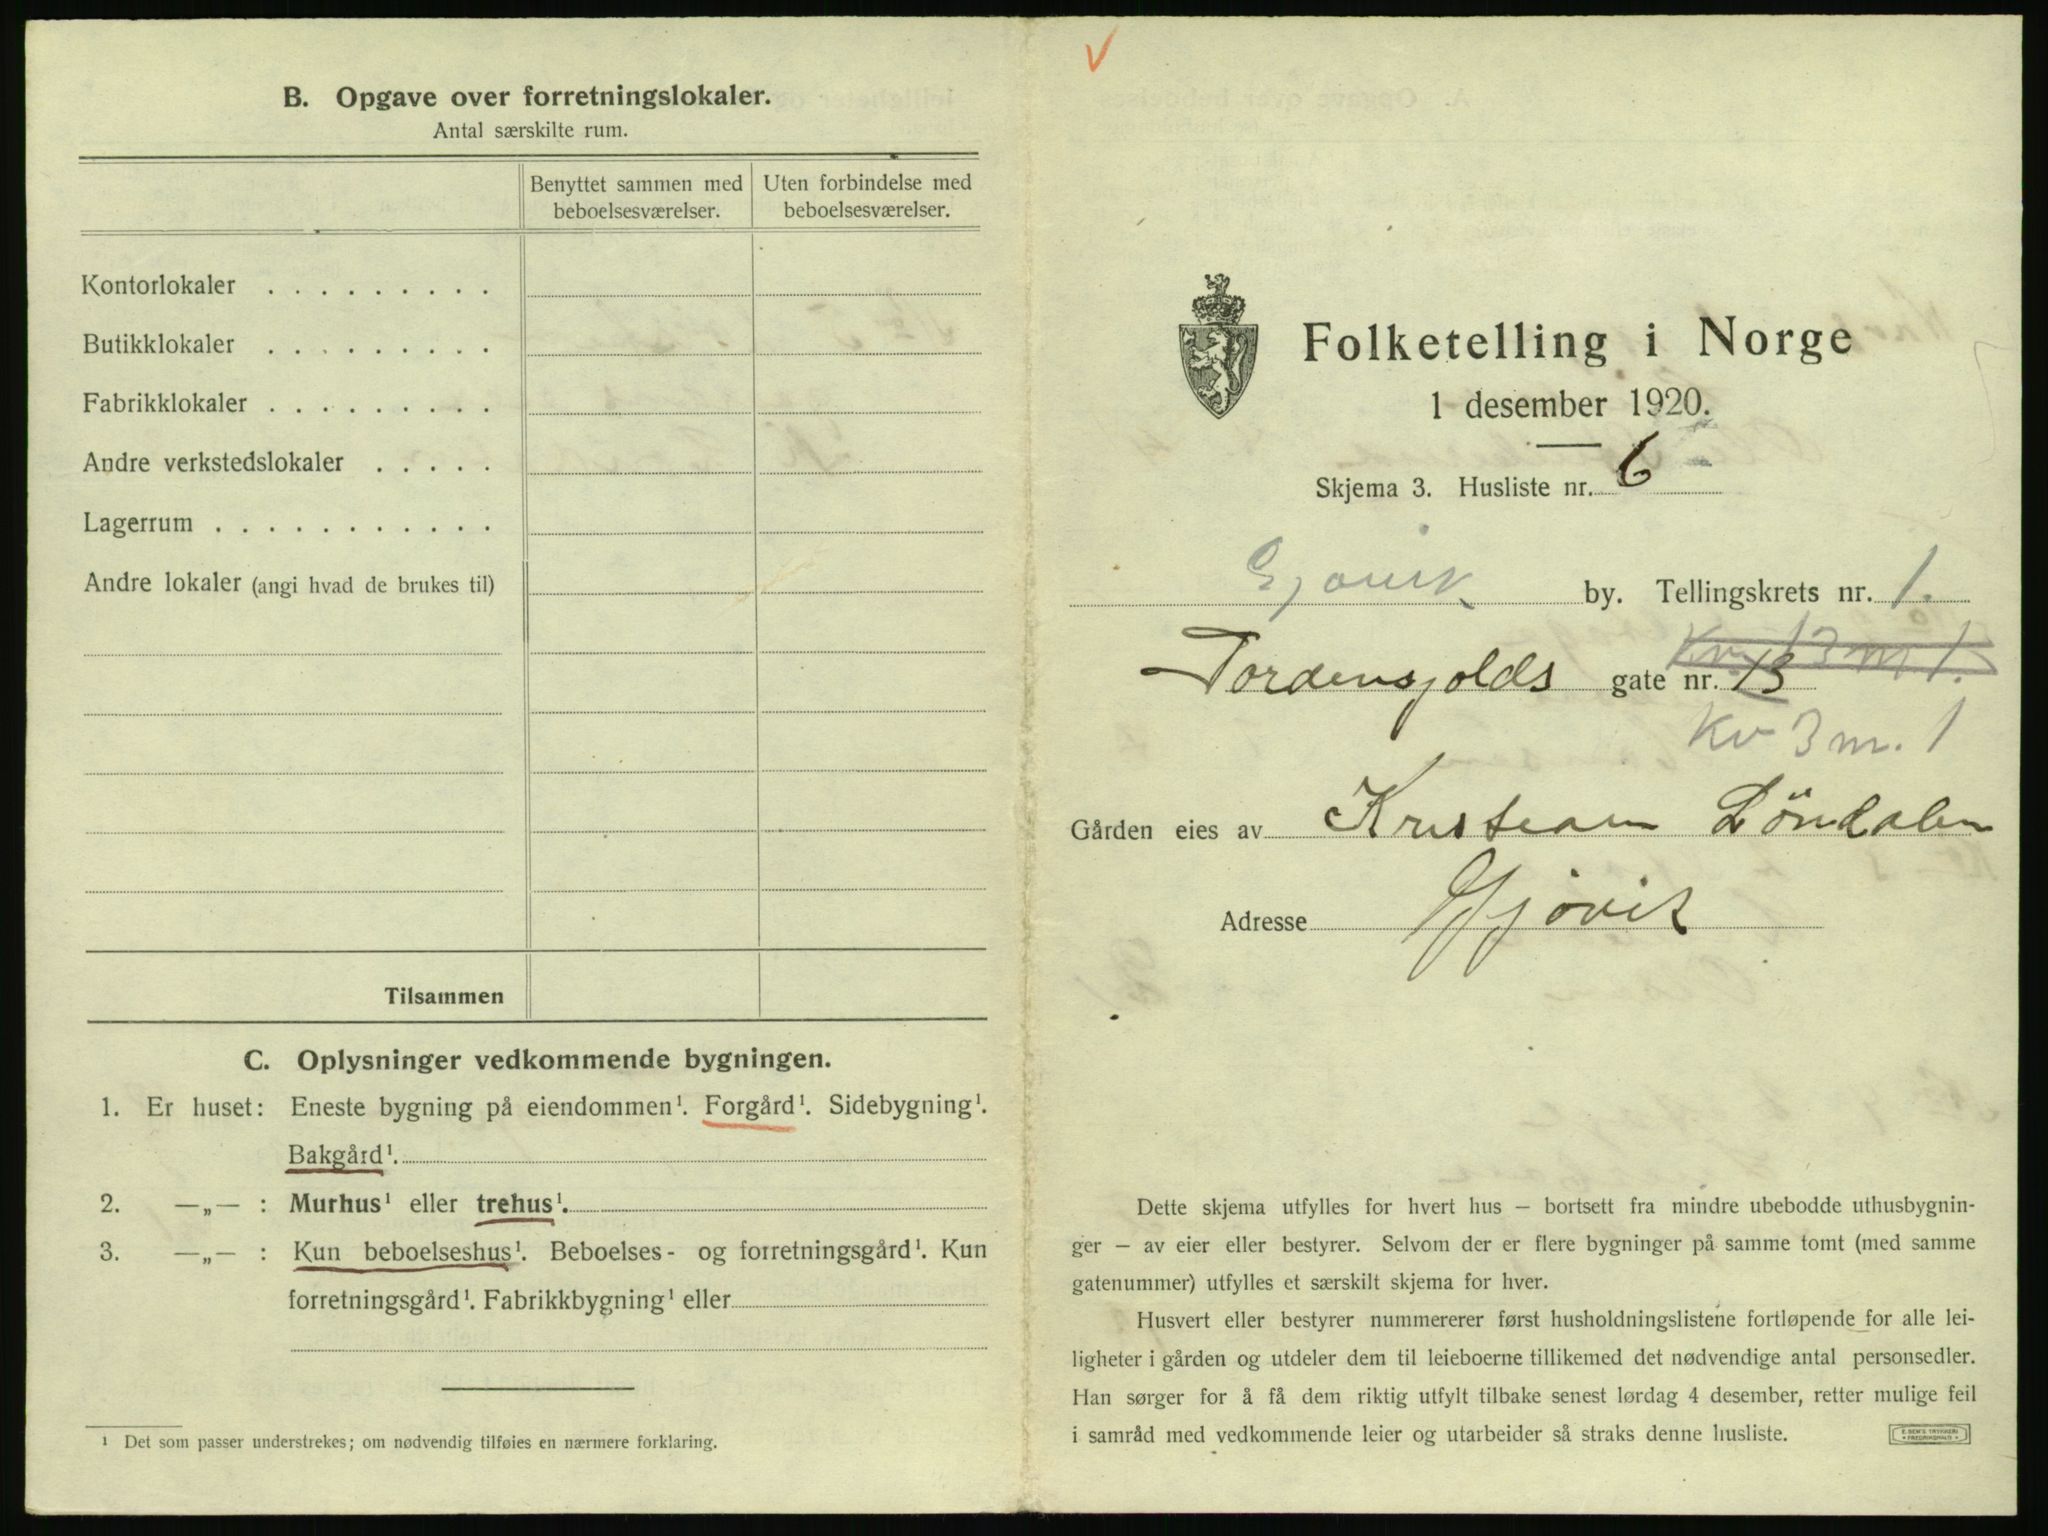 B. Opgave over forretningslokaler.
Antal særskilte rum.
Benyttet sammen med beboelsesværelser.
Uten forbindelse med beboelsesværelser.
Kontorlokaler . . . . . . . . .
Butikklokaler . . . . . . . . .
Fabrikklokaler . . . . . . . . .
Andre verkstedslokaler . . . . .
Lagerrum . . . . . . . . . . .
Andre lokaler (angi hvad de brukes til)
Tilsammen
C. Oplysninger vedkommende bygningen.
1. Er huset: Eneste bygning på eiendommen¹. Forgård¹. Sidebygning¹.
Bakgård¹.
2. —„— : Murhus¹ eller trehus¹.
3. —„— : Kun beboelseshus¹. Beboelses- og forretningsgård¹. Kun
forretningsgård¹. Fabrikkbygning¹ eller
¹ Det som passer understrekes; om nødvendig tilføies en nærmere forklaring.
V
Folketelling i Norge
1 desember 1920.
Skjema 3. Husliste nr. 6
Gjøvik by. Tellingskrets nr. 1.
Kv 13 m 1.
Tordensjolds gate nr. 13
Kv 3 m. 1
Gården eies av Kristian Löndalen
Adresse Gjövik
Dette skjema utfylles for hvert hus – bortsett fra mindre ubebodde uthusbygnin-
ger – av eier eller bestyrer. Selvom der er flere bygninger på samme tomt (med samme
gatenummer) utfylles et særskilt skjema for hver.
Husvert eller bestyrer nummererer først husholdningslistene fortløpende for alle lei-
ligheter i gården og utdeler dem til leieboerne tillikemed det nødvendige antal personsedler.
Han sørger for å få dem riktig utfylt tilbake senest lørdag 4 desember, retter mulige feil
i samråd med vedkommende leier og utarbeider så straks denne husliste.
E. SEM'S TRYKKERI
FREDRIKSHALD